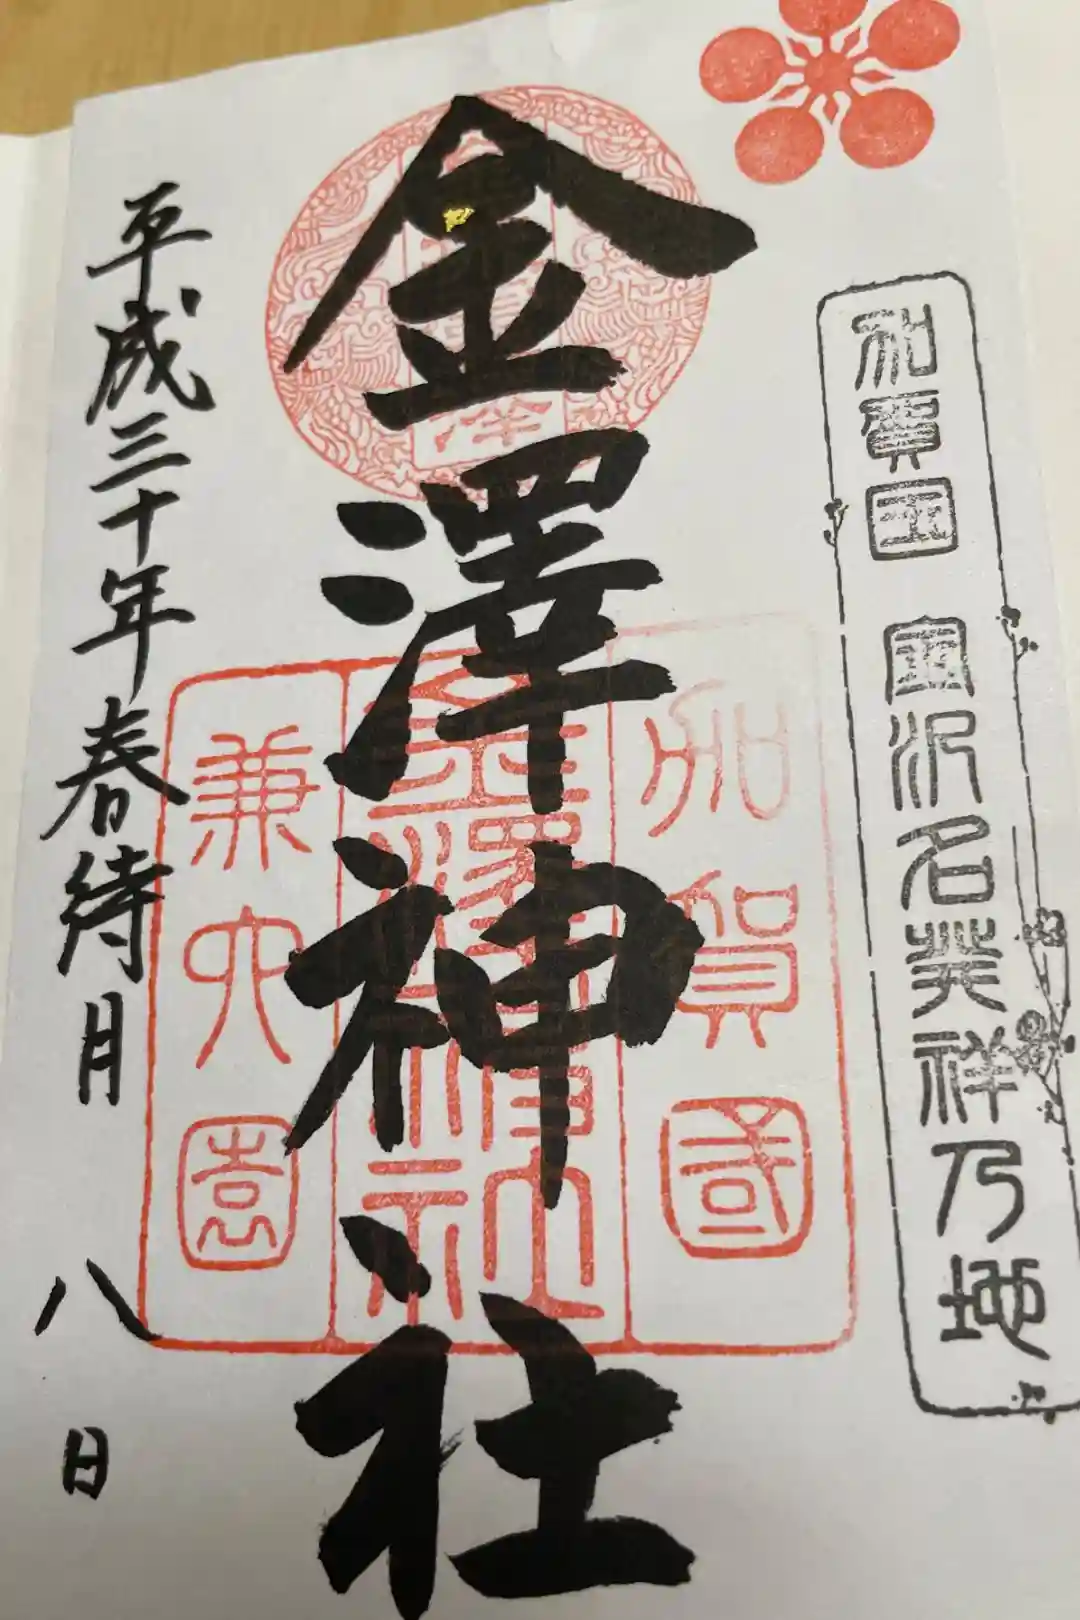 加賀国 金沢名発祥乃地
金澤神社
加賀國
金澤神社
兼六園
平成三十年春待月 八日